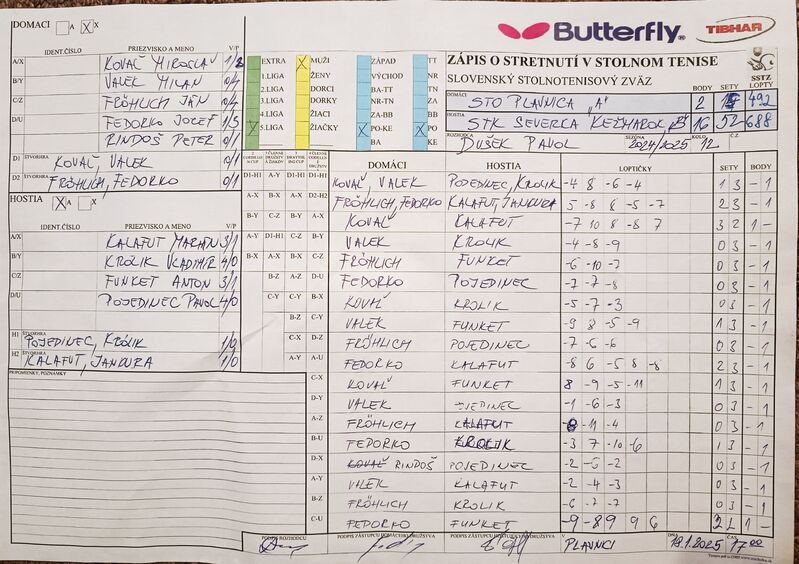 DOMACI A X
Butterfly
TIBHAR
IDENT.ČÍSLO PRIEZVISKO A MENO V/P
A/X KOVAČ MIROSLAV 1/2
B/Y VALEK MILAN 0/4
C/Z FRÖHLICH JÁN 0/4
D/U FEDORKO JOZEF 1/3
RINDOŠ PETER 0/1
D1 ŠTVORHRA KOVAČ, VALEK 0/1
D2 ŠTVORHRA FRÖHLICH, FEDORKO 0/1
HOSTIA X A X
IDENT.ČÍSLO PRIEZVISKO A MENO V/P
A/X KALAFUT MARTIN 3/1
B/Y KROLIK VLADIMIR 4/0
C/Z FUNKET ANTON 3/1
D/U POJEDINEC PAVOL 4/0
H1 ŠTVORHRA POJEDINEC, KROLIK 1/0
H2 ŠTVORHRA KALAFUT, JANKURA 1/0
PRIPOMIENKY, POZNÁMKY
EXTRA X MUŽI ZÁPAD TT
1.LIGA ŽENY VÝCHOD NR
2.LIGA DORCI BA-TT TN
3.LIGA DORKY NR-TN ZA
4.LIGA ŽIACI ZA-BB BB
X 5.LIGA ŽIAČKY X PO-KE X PO
BA KE
ZÁPIS O STRETNUTÍ V STOLNOM TENISE
SLOVENSKÝ STOLNOTENISOVÝ ZVÄZ
SSTZ
BODY SETY LOPTY
DOMÁCI STO PLAVNICA "A" 2 492
HOSTIA STK SEVERKA KEŽMAROK "B" 16 52 688
ROZHODCA DUŠEK PAVOL SEZÓNA 2024/2025 Č.Z. 12
DOMÁCI HOSTIA LOPTIČKY SETY BODY
D1-H1 A-Y D1-H1 D1-H1 KOVAČ, VALEK POJEDINEC, KROLIK -4 8 -6 -4 1 3 - 1
A-X B-X A-X D2-H2 FRÖHLICH, FEDORKO KALAFUT, JANKURA 5 -8 8 -5 -7 2 3 - 1
B-Y C-Z B-Y A-X KOVAČ KALAFUT -7 10 8 -8 7 3 2 1 -
A-Y D1-H1 C-Z B-Y VALEK KROLIK -4 -8 -9 0 3 - 1
B-X A-X B-X C-Z FRÖHLICH FUNKET -6 -10 -7 0 3 - 1
B-Z A-Z D-U FEDORKO POJEDINEC -7 -7 -8 0 3 - 1
C-Y C-Y B-X KOVAČ KROLIK -5 -7 -3 0 3 - 1
B-Z C-Y VALEK FUNKET -9 8 -5 -9 1 3 - 1
A-Y D-Z FRÖHLICH POJEDINEC -7 -6 -6 0 3 - 1
A-U FEDORKO KALAFUT -8 6 -5 8 -8 2 3 - 1
C-X KOVAČ FUNKET 8 -9 -5 -11 1 3 - 1
D-Y VALEK -1 -6 -3 0 3 - 1
A-Z FRÖHLICH KALAFUT -8 -11 -4 0 3 - 1
B-U FEDORKO KROLIK -3 7 -10 -6 1 3 - 1
D-X KOVAČ RINDOŠ POJEDINEC -2 -6 -2 0 3 - 1
A-Y VALEK KALAFUT -2 -4 -3 0 3 - 1
B-Z FRÖHLICH KROLIK -6 -7 -7 0 3 - 1
C-U FEDORKO FUNKET -9 -8 9 9 6 1 -
PODPIS ROZHODCU PODPIS ZÁSTUPCU DOMÁCEHO DRUŽSTVA PODPIS ZÁSTUPCU HOSŤUJÚCEHO DRUŽSTVA PLAVNICI DŇA 18.1.2025 ČAS 17 00